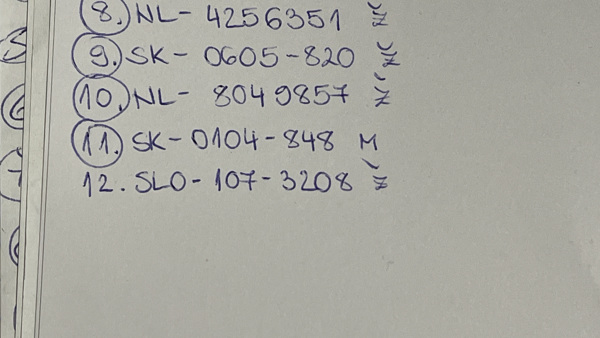 8. NL- 4256351 Ž
9. SK- 0605-820 Ž
10. NL- 8049857 Ž
11. SK-0104-848 M
12. SLO-107-3208 Ž